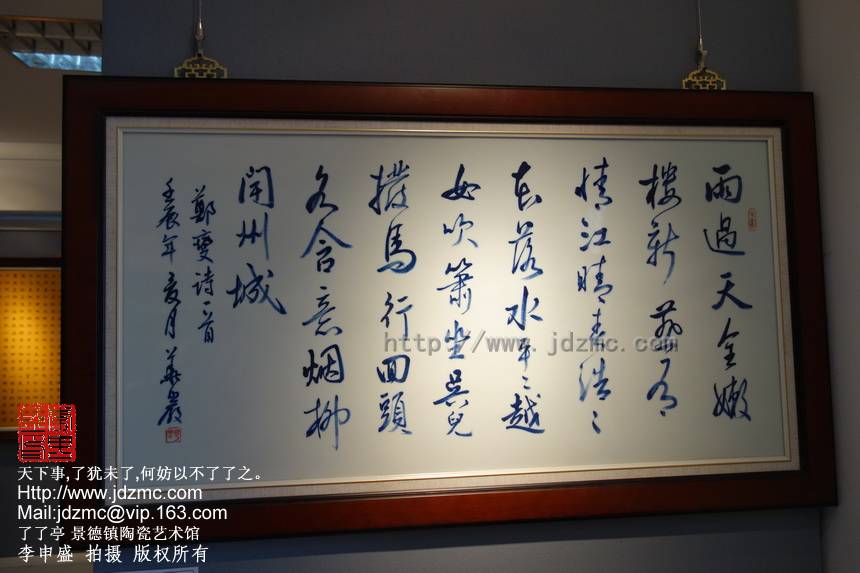 雨過天全嫩
楼新燕有
情江晴春浩々
花落水平々越
女吹簫坐吴兒
撥馬行回頭
各含意烟柳
閏州城
鄭燮诗一首
壬辰年夏月
http://www.jdzmc.com
天下事,了犹未了,何妨以不了了之。
Http://www.jdzmc.com
Mail:jdzmc@vip.163.com
了了亭 景德镇陶瓷艺术馆
李申盛 拍摄 版权所有